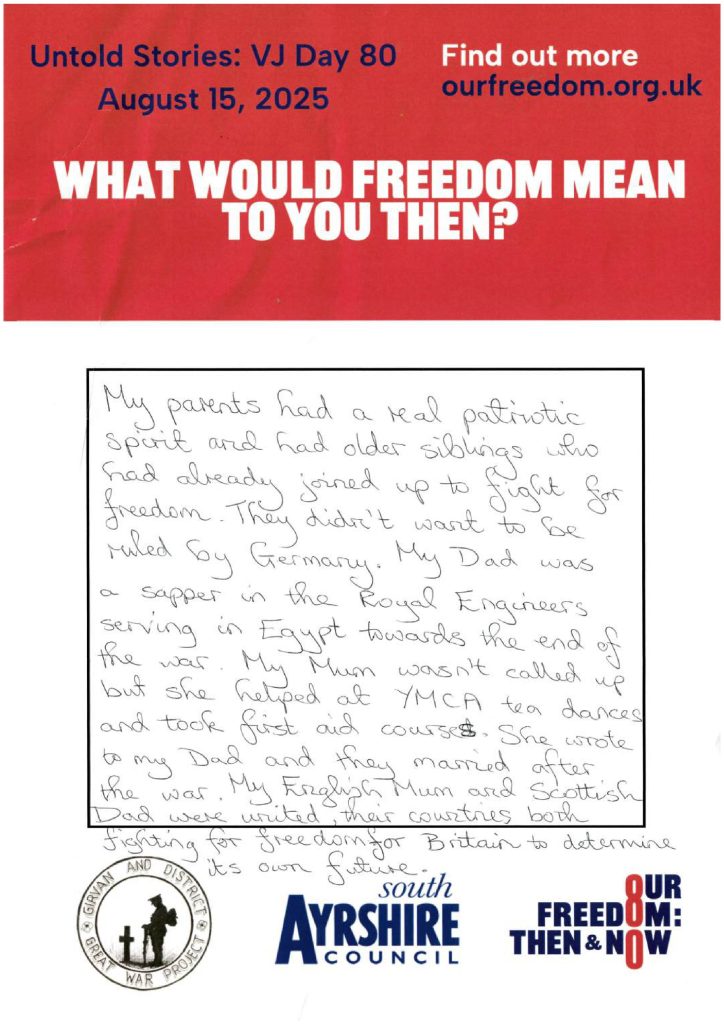 Untold Stories: VJ Day 80
August 15, 2025
Find out more
ourfreedom.org.uk
WHAT WOULD FREEDOM MEAN
TO YOU THEN?
My parents had a real patriotic
spirit and had older siblings who
had already joined up to fight for
freedom. They didn't want to be
ruled by Germany. My Dad was
a sapper in the Royal Engineers
serving in Egypt towards the end of
the war. My Mum wasn't called up
but she helped at YMCA tea dances
and took first aid courses. She wrote
to my Dad and they married after
the war. My English Mum and Scottish
Dad were united, their countries both
fighting for freedom for Britain to determine
its own future.
GIRVAN AND DISTRICT
GREAT WAR PROJECT
south
AYRSHIRE
COUNCIL
OUR
FREEDOM:
THEN & NOW